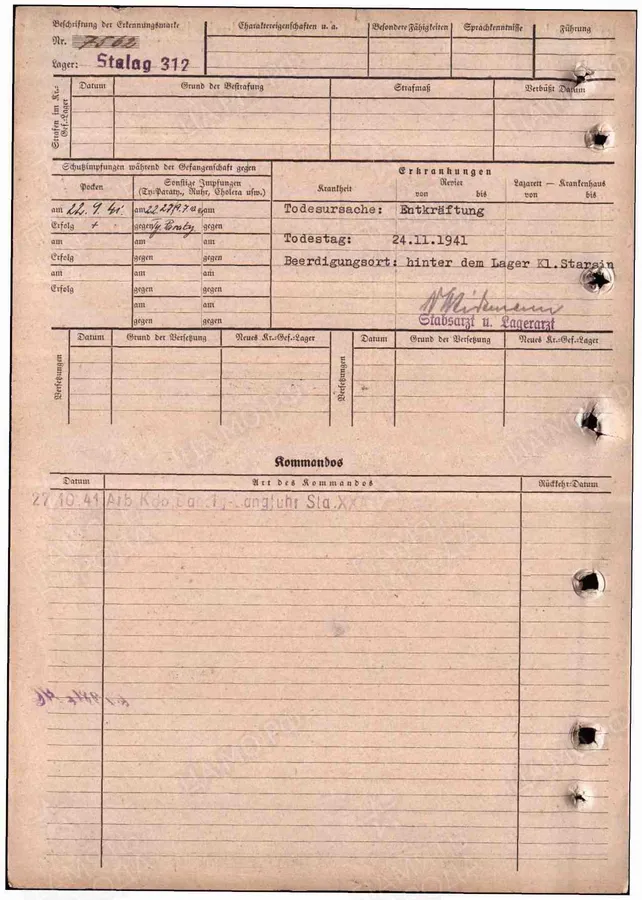 Beschriftung der Erkennungsmarke
Nr. 7562
Lager: Stalag 312
Charaktereigenschaften u. a.
Besondere Fähigkeiten
Sprachkenntnisse
Führung
Strafen im Kr.-Gef.-Lager
Datum
Grund der Bestrafung
Strafmaß
Verbüßt Datum
Schutzimpfungen während der Gefangenschaft gegen
Pocken
Sonstige Impfungen
(Ty.-Paraty., Ruhr, Cholera usw.)
am 22. 9. 41.
am
am
Erfolg +
gegen Ty.
gegen
am
am
am
Erfolg
gegen
gegen
am
am
am
Erfolg
gegen
gegen
am
am
gegen
gegen
Erkrankungen
Krankheit
Revier
von bis
Lazarett — Krankenhaus
von bis
Todesursache: Entkräftung
Todestag: 24.11.1941
Beerdigungsort: hinter dem Lager Kl.Starsin
Stabsarzt u. Lagerarzt
Versetzungen
Datum
Grund der Versetzung
Neues Kr.-Gef.-Lager
Versetzungen
Datum
Grund der Versetzung
Neues Kr.-Gef.-Lager
Kommandos
Datum
Art des Kommandos
Rückkehr-Datum
27.10.41 Arb Kdo Danzig-Langfuhr Sta.XX